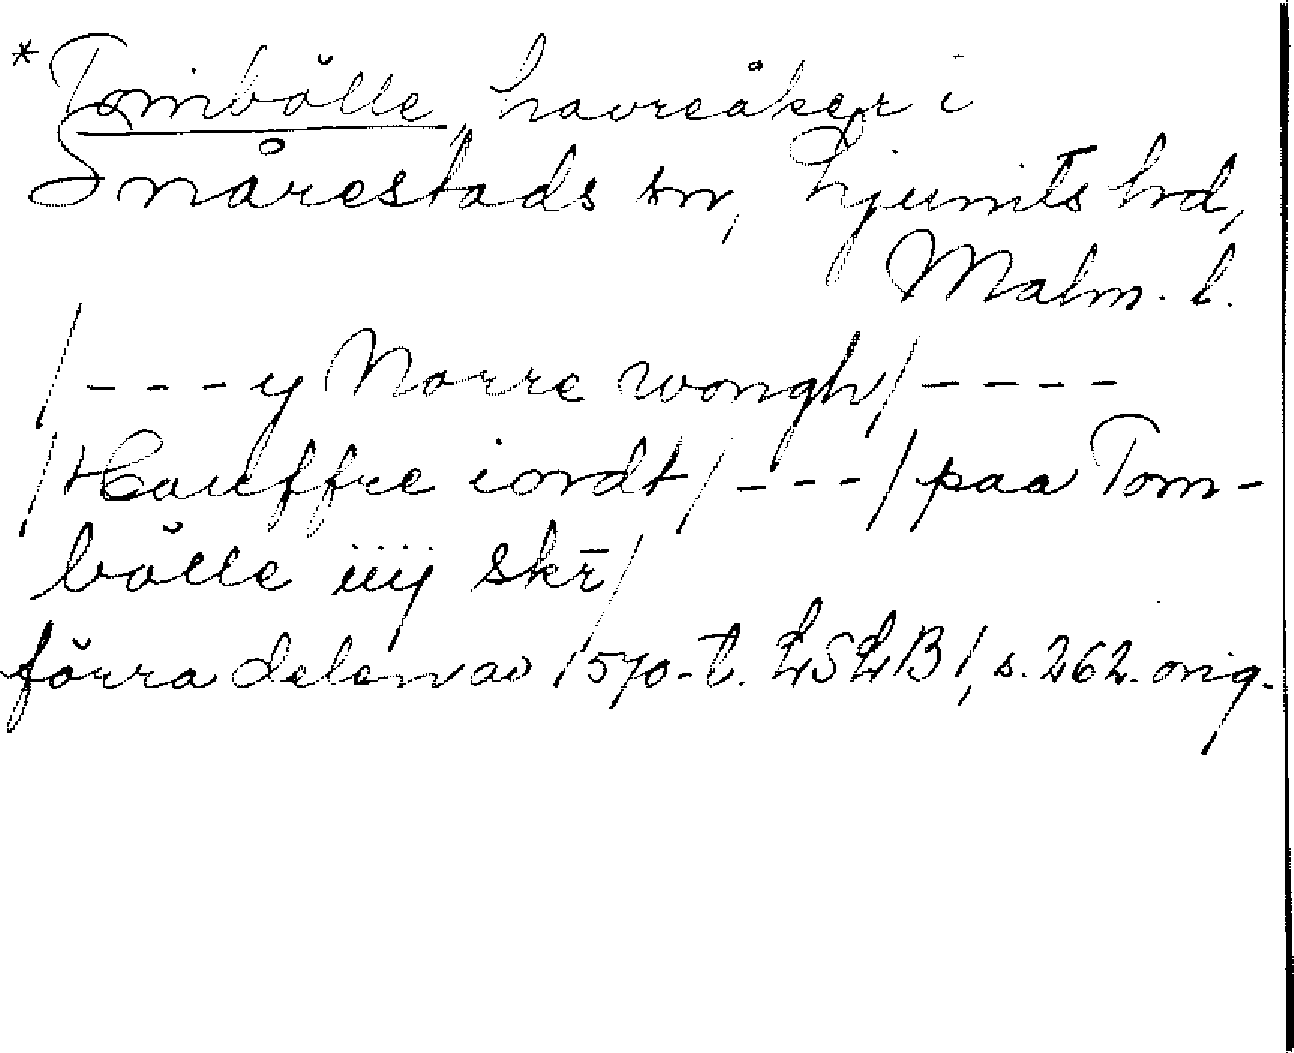 *Tombölle, havreåker i
Snårestads sn, Ljunits hd,
Malm. l.
/ - - - y Norre wongh / - - - -
/ Hauffre iordt / - - - / paa Tom-
bölle iiij skr̄ /
förra delen av 1570-t. LSLB 1, s. 262. orig.